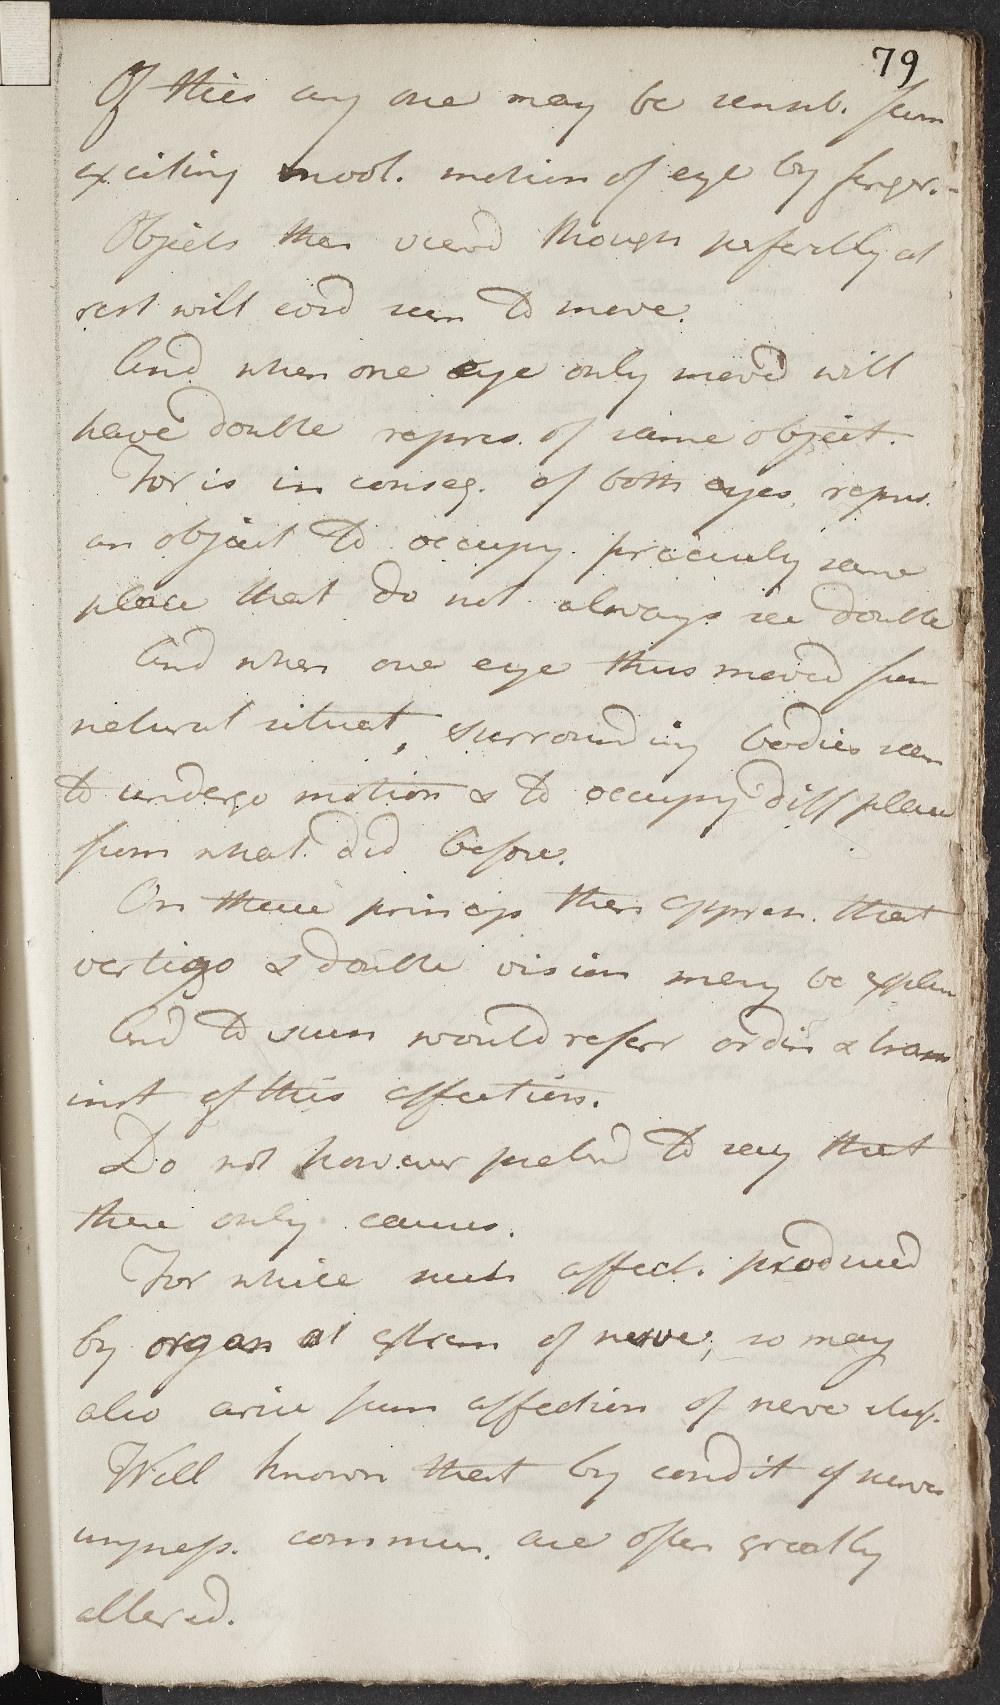 79
Of this any one may be sensib. from
exciting invol. motion of eye by finger.-
Objects then view'd though perfectly at
rest will seem to move.
And when one eye only mov'd will
have double repres. of same object.
For is in conseq. of both eyes repres.
an object to occupy precisely same
place that do not always see double
And when one eye thus moved from
natural situat, surrounding bodies seem
to undergo motion & to occupy diff place
from what did before.
On these princips then appreh. that
vertigo & double vision may be explain
And to such would referr ordin &
inst of this affection.
Do not however pretend to say that
these only causes.
For while such affect. produced
by organ at extrem of nerve, so may
also arise from affection of nerve itself.
Well known that by condit of nerves
impress. commun. are often greatly
altered.